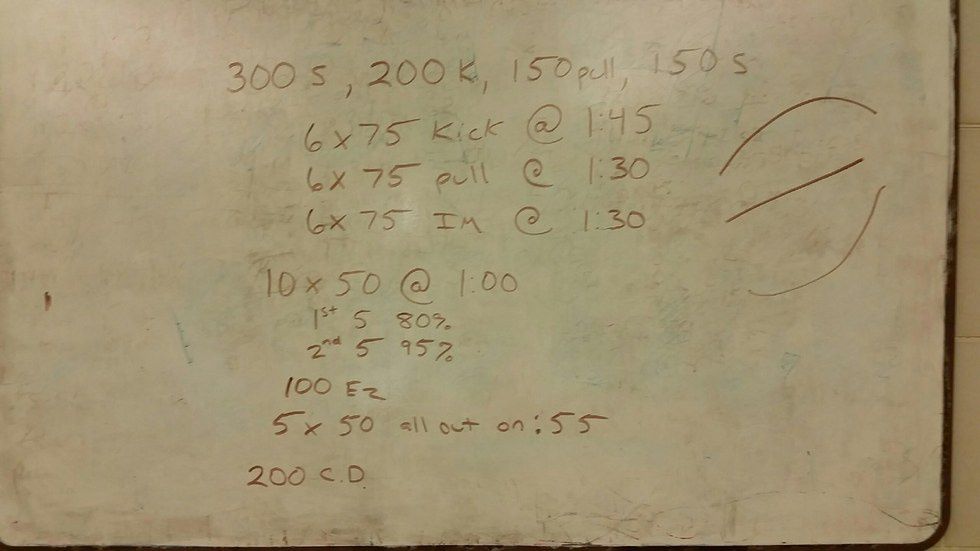 300 S, 200 K, 150 pull, 150 S
6 x 75 Kick @ 1:45
6 x 75 pull @ 1:30
6 x 75 IM @ 1:30
10 x 50 @ 1:00
1st 5 80%
2nd 5 95%
100 EZ
5 x 50 all out on :55
200 C.D.